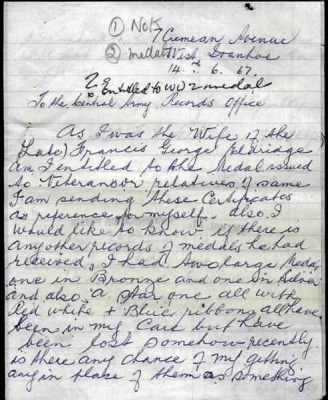 ① Note
7 Crimean Avenue
② medals West Ivanhoe
14. 6. 67.
2 Entitled to WW2 medal
To the Central Army Records Office
As I was the Wife of the
(Late) Francis George Eldridge
am I entitled to the Medal issued
to Veterans or relatives of same
I am sending these Certificates
as reference for myself. also I
would like to know if there is
any other records of medals he had
received, I had two large Medals
one in Bronze and one in Silver
and also a Star one, all with
Red white + Blue ribbons all have
been in my Care but have
been lost somehow recently
is there any chance of my getting
any in place of them as something